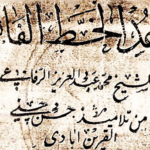 الخط
للشيخ محمد عبد العزيز الرفاعي
من تلاميذ حسن حسني
القرين آبادي